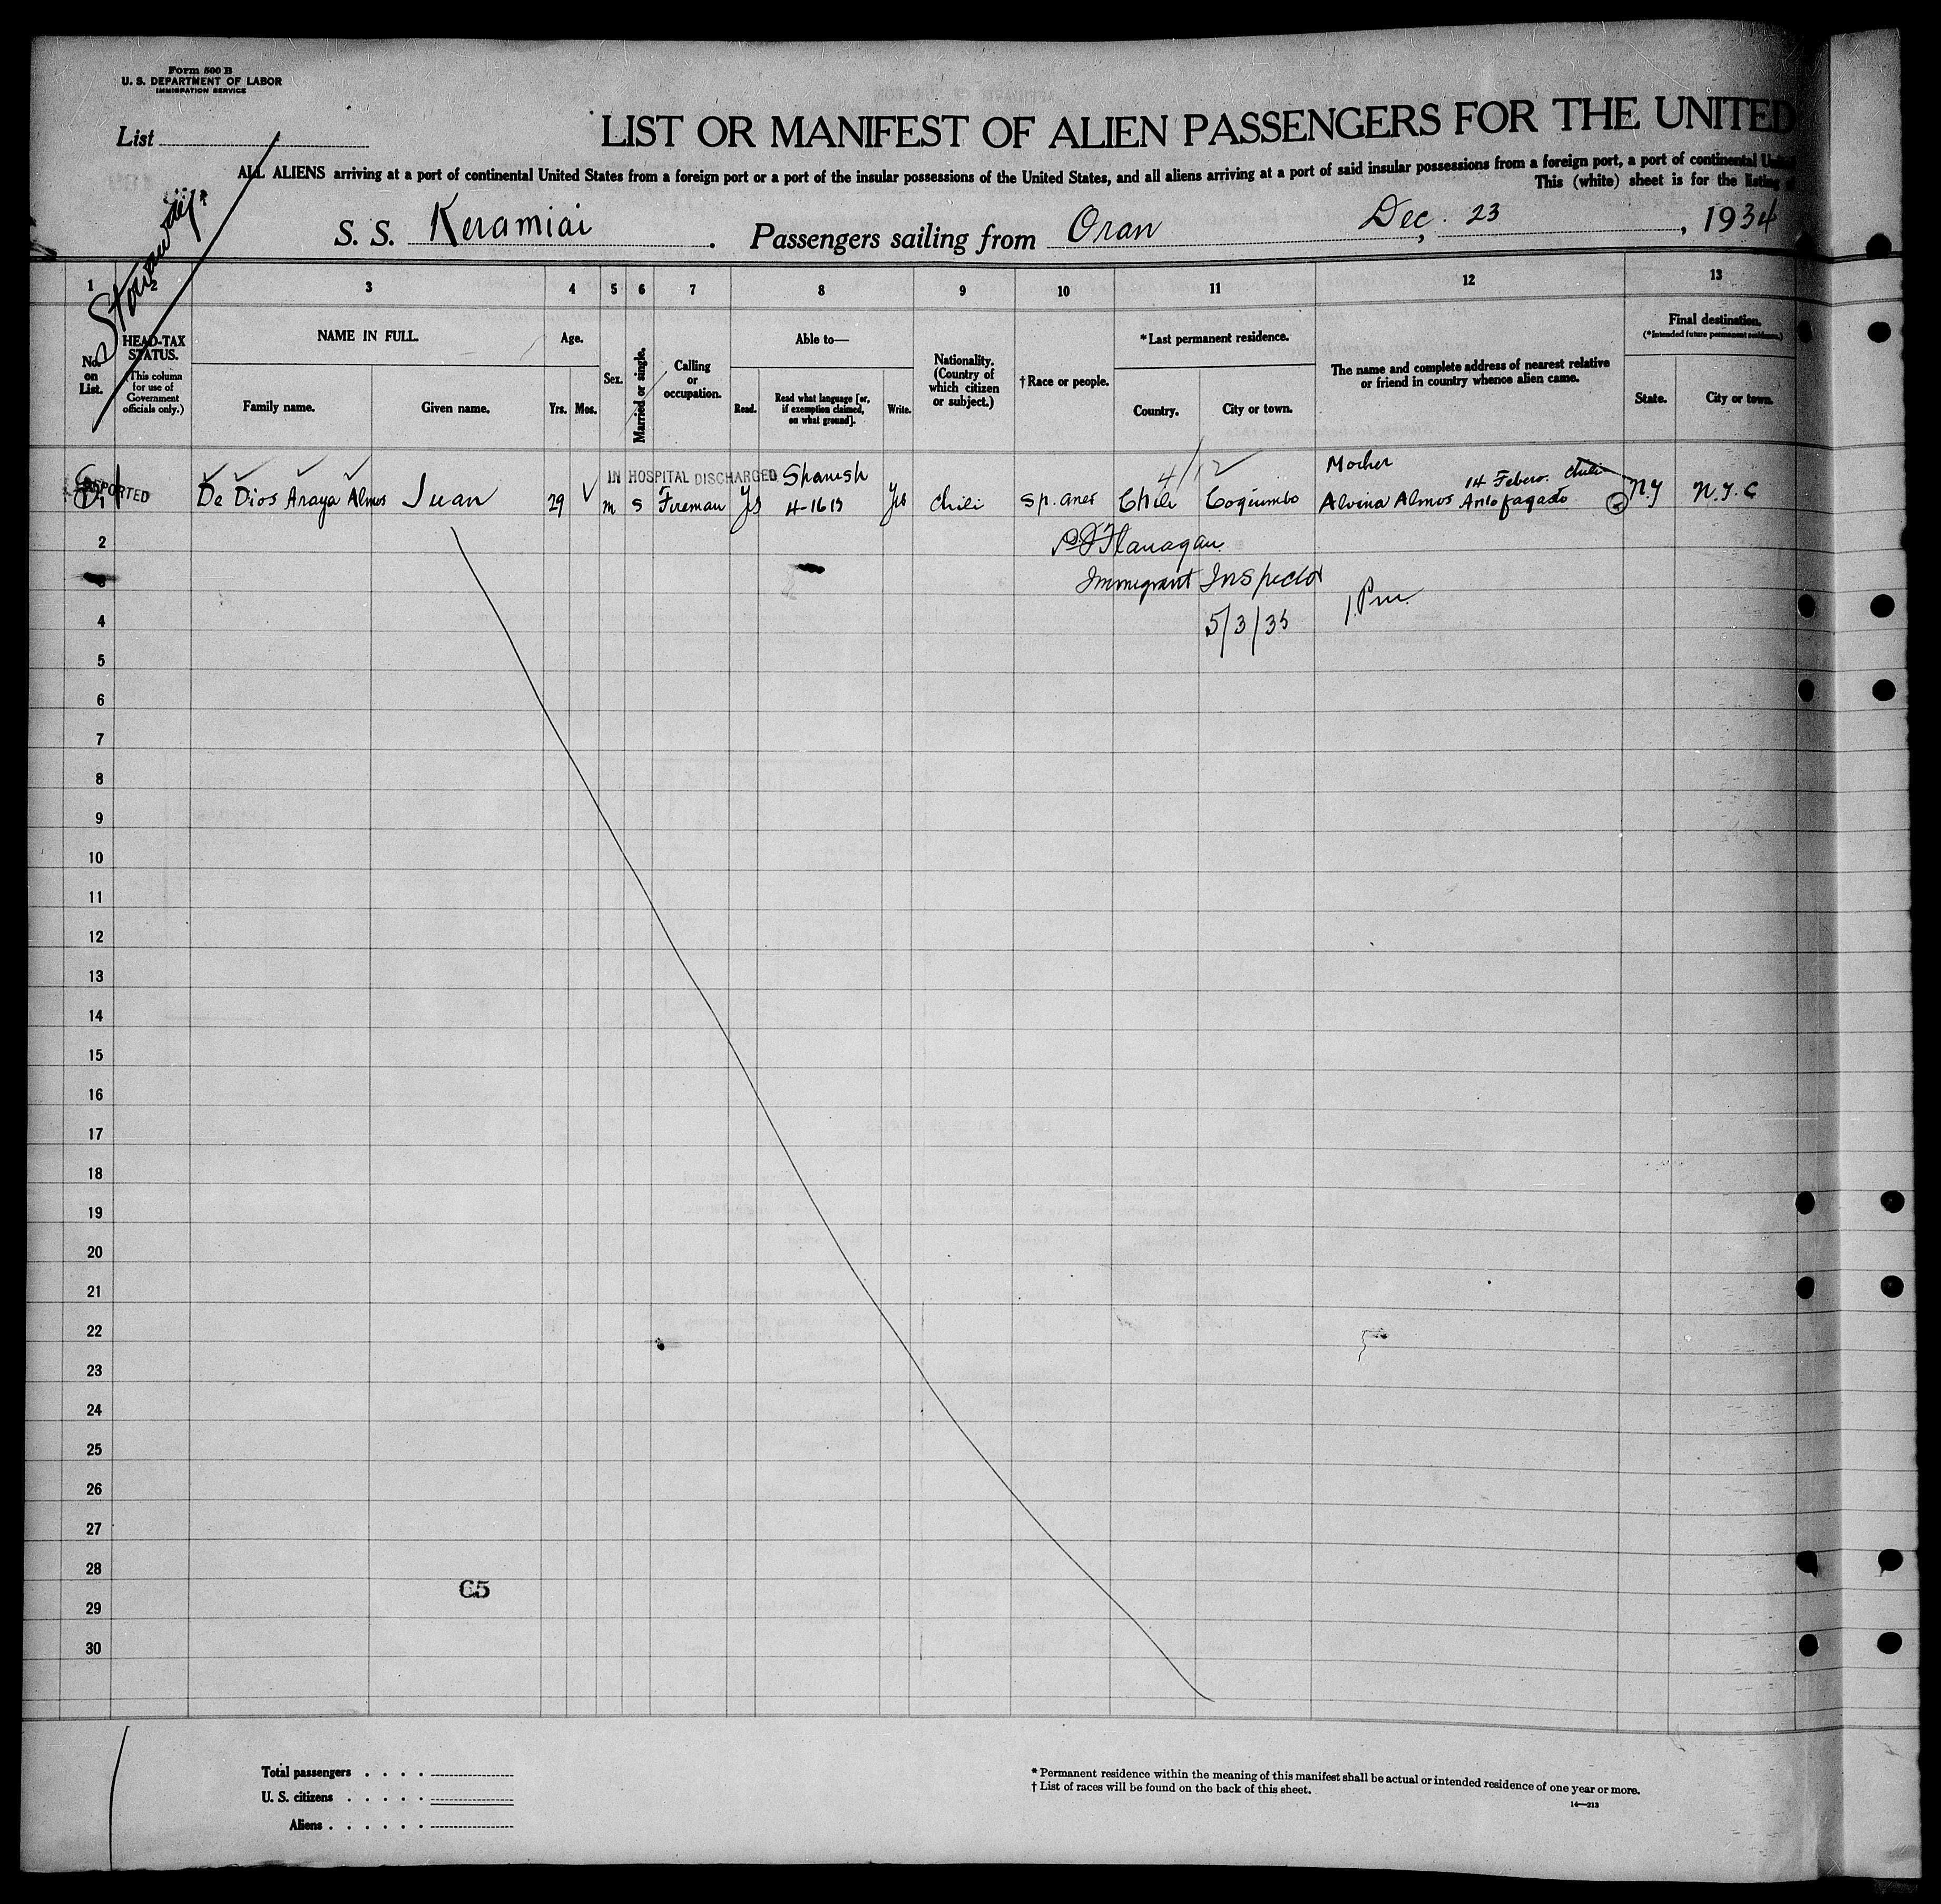 Form 500 B
U. S. DEPARTMENT OF LABOR
IMMIGRATION SERVICE
List
LIST OR MANIFEST OF ALIEN PASSENGERS FOR THE UNITED
ALL ALIENS arriving at a port of continental United States from a foreign port or a port of the insular possessions of the United States, and all aliens arriving at a port of said insular possessions from a foreign port, a port of continental
This (white) sheet is for the listing
Stowaway
S. S. Keramiai . Passengers sailing from Oran Dec, 23 , 1934
1 2 3 4 5 6 7 8 9 10 11 12 13
No. on List.
HEAD-TAX STATUS.
(This column for use of Government officials only.)
NAME IN FULL.
Family name. Given name.
Age.
Yrs. Mos.
Sex.
Married or single.
Calling or occupation.
Able to—
Read. Read what language [or, if exemption claimed, on what ground]. Write.
Nationality. (Country of which citizen or subject.)
†Race or people.
*Last permanent residence.
Country. City or town.
The name and complete address of nearest relative or friend in country whence alien came.
Final destination.
(*Intended future permanent residence.)
State. City or town.
IN HOSPITAL DISCHARGED Spanish 4/12 Mother 14 Febero. Chili
De Dios Araya Almos Juan 29 m s Fireman Yes 4-16 13 Yes Chili Sp. amer Chili Coquimbo Alvina Almos Antofagado N.Y N.Y.C
Flanagan
Immigrant Inspector
5/3/35 1 Pm.
2
3
4
5
6
7
8
9
10
11
12
13
14
15
16
17
18
19
20
21
22
23
24
25
26
27
28
65
29
30
Total passengers . . . .
U. S. citizens . . . . .
Aliens . . . . . .
* Permanent residence within the meaning of this manifest shall be actual or intended residence of one year or more.
† List of races will be found on the back of this sheet.
14—213